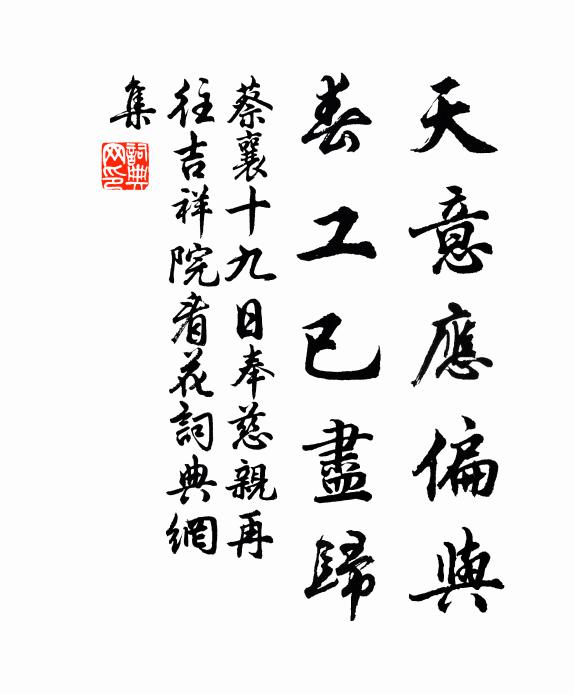 天意應偏與
春工已盡歸
蔡襄十九日奉慈親再
往吉祥院看花詞典網
集
詞典
网印